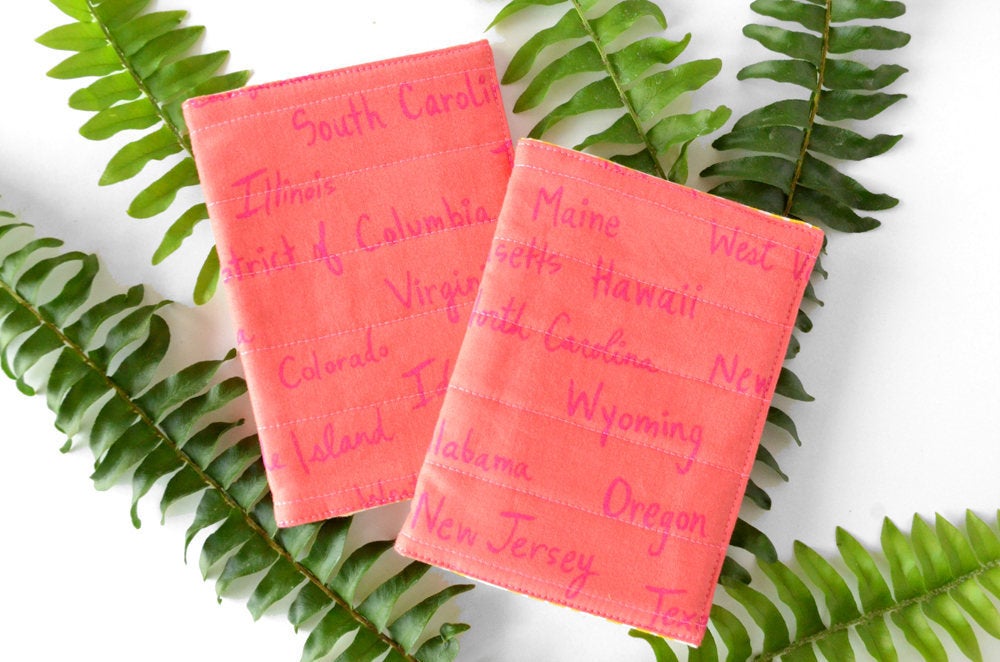 South Caroli
Illinois
strict of Columbia
Virgin
a
Colorado
Id
e Island
Maine
West V
setts
Hawaii
North Carolina
New
Wyoming
labama
Oregon
New Jersey
Tex